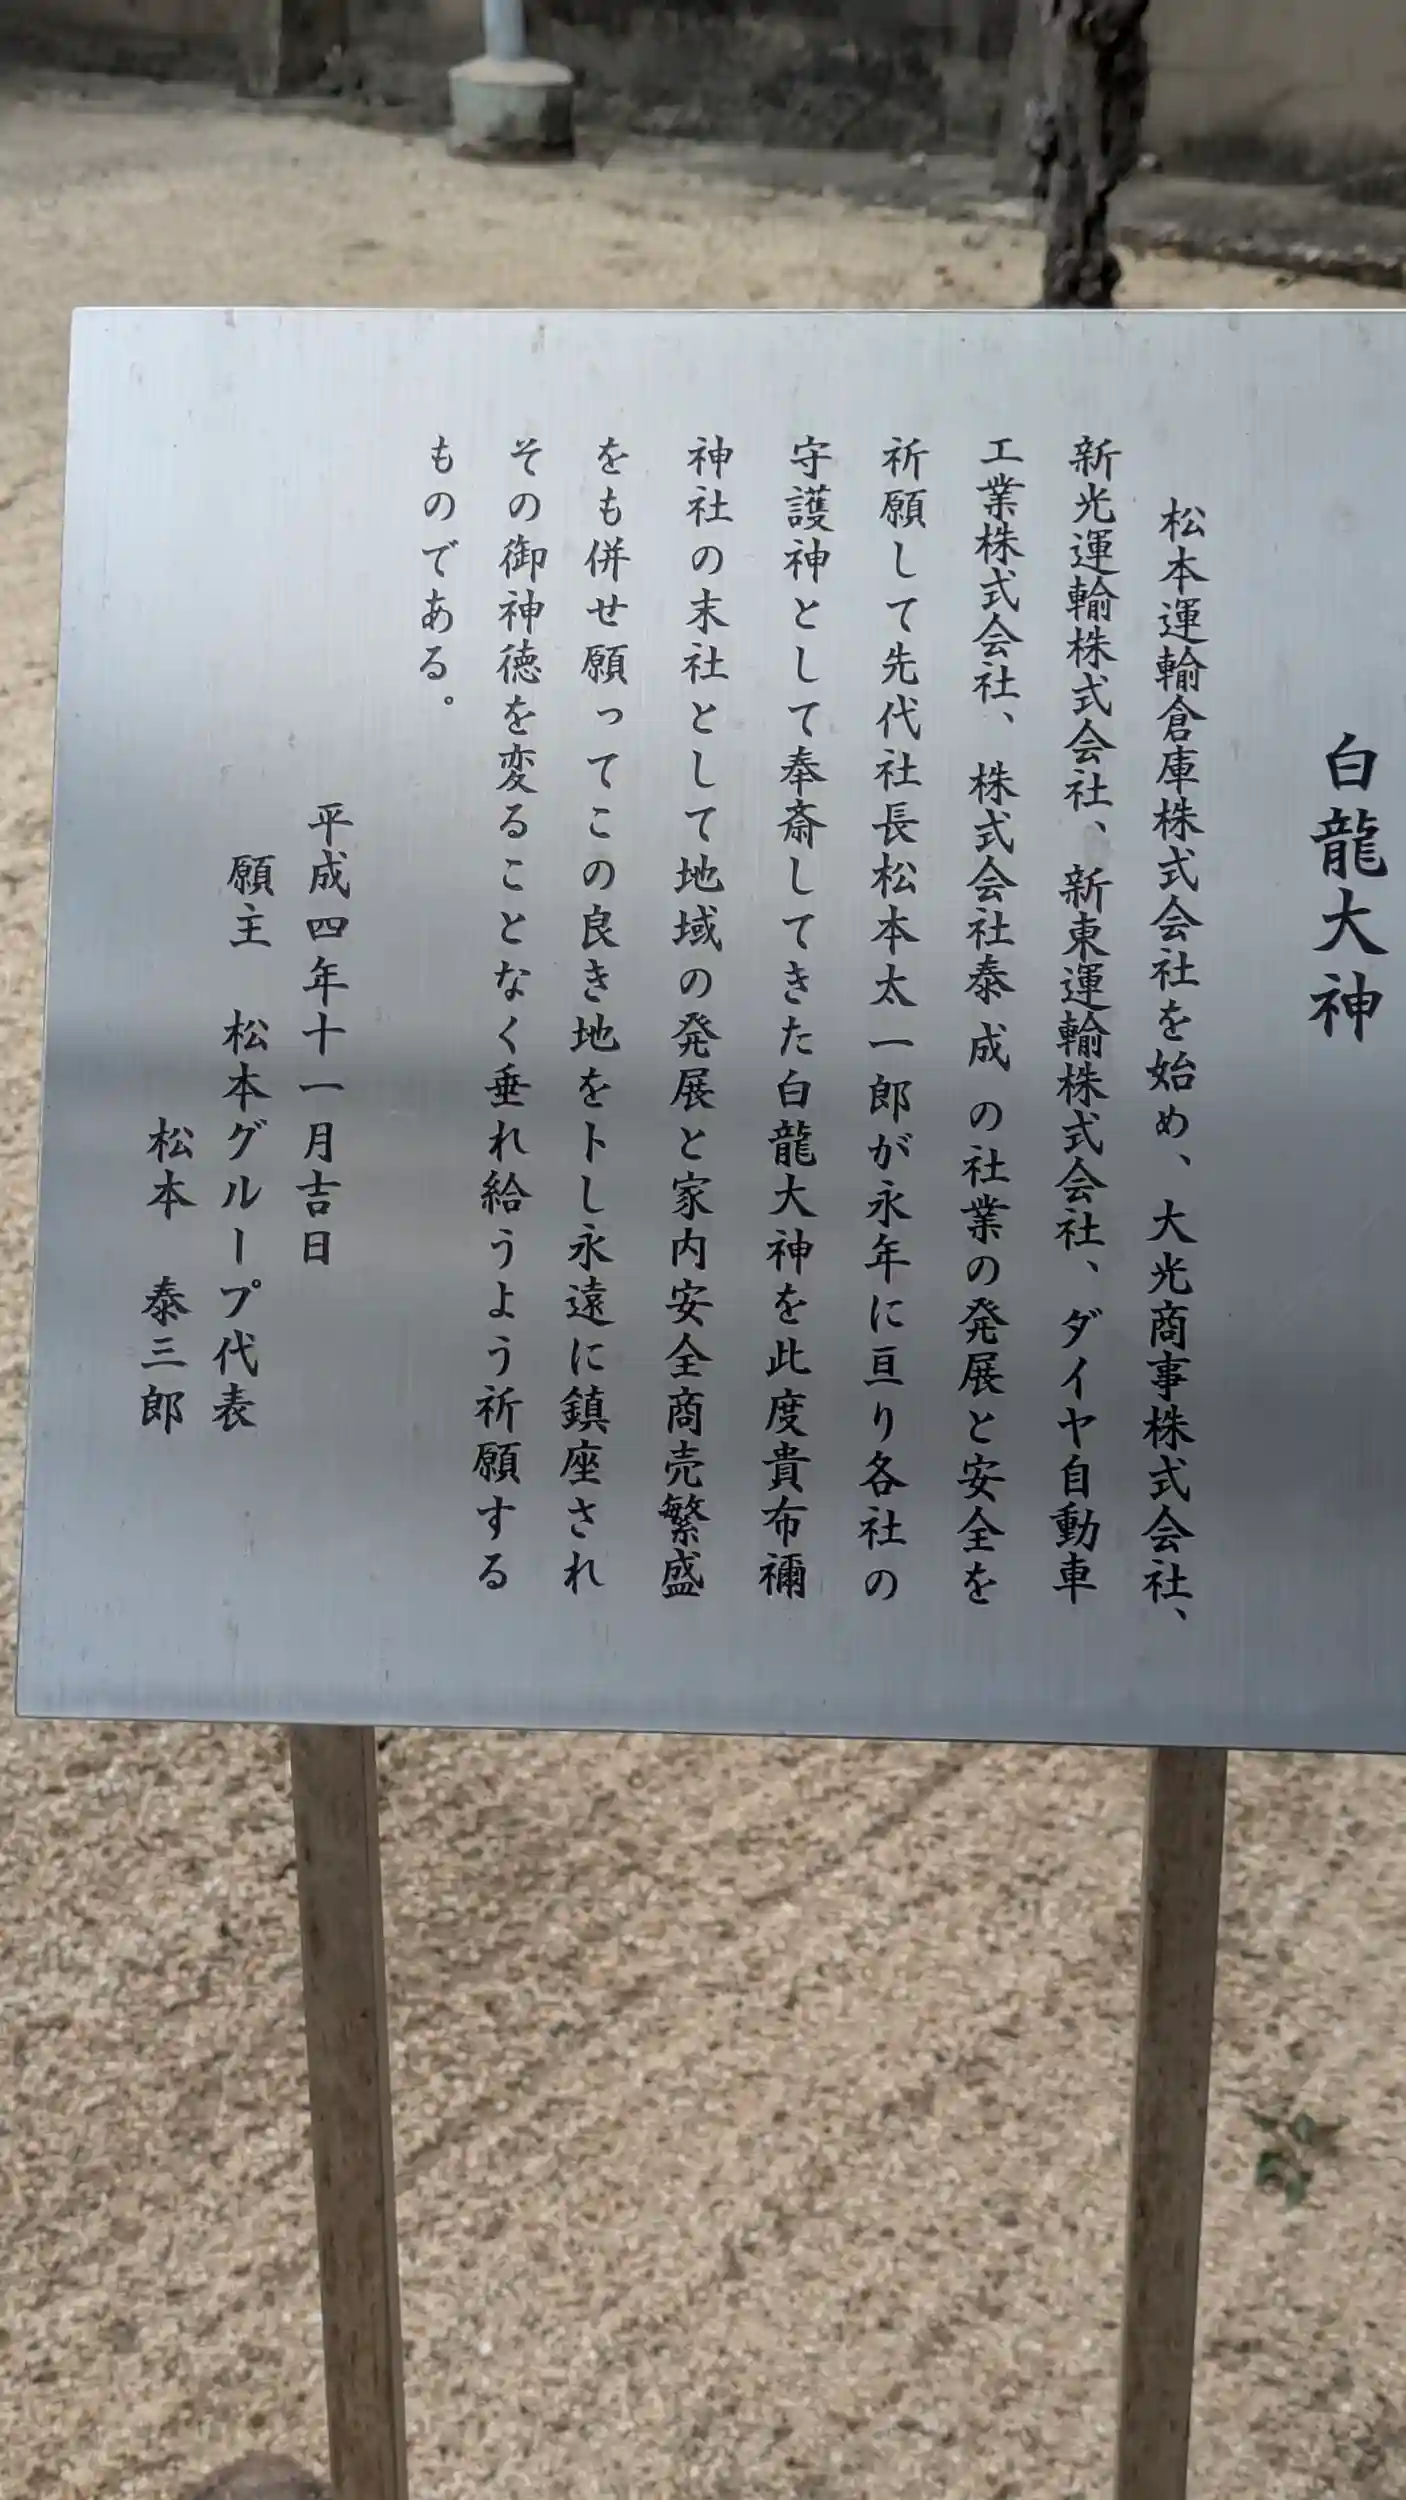 白龍大神
松本運輸倉庫株式会社を始め、大光商事株式会社、
新光運輸株式会社、新東運輸株式会社、ダイヤ自動車
工業株式会社、株式会社泰成の社業の発展と安全を
祈願して先代社長松本太一郎が永年に亘り各社の
守護神として奉斎してきた白龍大神を此度貴布禰
神社の末社として地域の発展と家内安全商売繁盛
をも併せ願ってこの良き地を卜し永遠に鎮座され
その御神徳を変ることなく垂れ給うよう祈願する
ものである。
平成四年十一月吉日
願主　松本グループ代表
松本　泰三郎